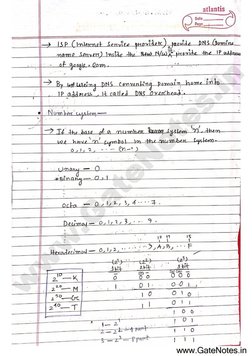 atlantis
Date
Page
→ ISP (Internet Service providers) provide DNS (Domain
name server) inside the N/W provide the IP address
of google.com.
→ By using DNS converting Domain name into
IP address, it called DNS overhead.
• Number system —
→ If the base of a number system 'n' then
we have 'n' symbol in the number system.
0, 1, 2, ---- (n-1)
Unary — 0
Binary — 0, 1
Octa — 0, 1, 2, 3, 4 ---- 7.
Decimal — 0, 1, 2, 3, --- 9.
Hexadecimal — 0, 1, 2, ------- 9, A, B, -- F
2^10 — K
2^20 — M
2^30 — G
2^40 — T
(2^1) (2^2) (2^3)
1 bit 2 bit 3 bit
0 00 000
1 01 001
10 010
11 011
100
101
110
111
www.GateNotes.in
www.GateNotes.in